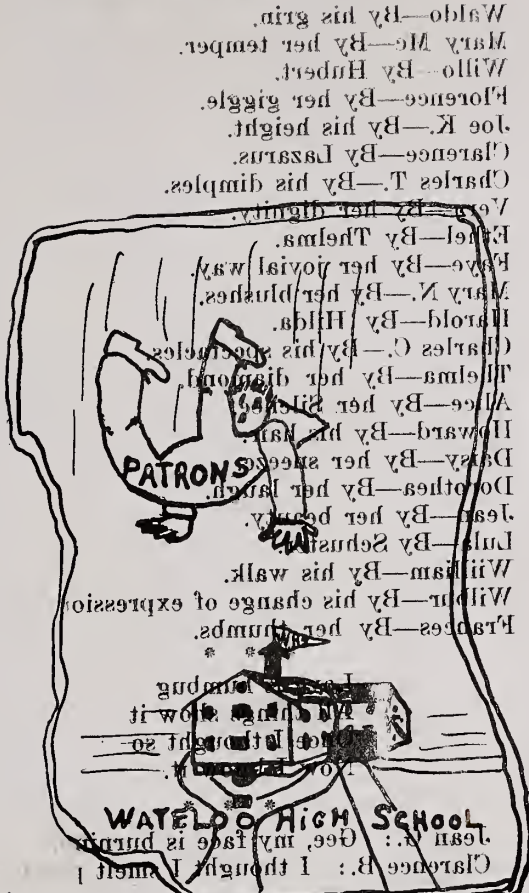 Waldo—By his grin.
Mary Mc—By her temper.
Willo—By Hubert.
Florence—By her giggle.
Joe K.—By his height.
Clarence—By Lazarus.
Charles T.—By his dimples.
Vera—By her dignity.
Ethel—By Thelma.
Faye—By her jovial way.
Mary N.—By her blushes.
Harold—By Hilda.
Charles C.—By his spectacles.
Thelma—By her diamond.
Alice—By her Silence.
Howard—By his hair.
PATRONS
Daisy—By her sneeze.
Dorothea—By her laugh.
Jean—By her beauty.
Lula—By Schuster.
William—By his walk.
Wilbur—By his change of expression
Frances—By her thumbs.
* * *
humbug
All things show it
Once I thought so
Now I know it.
WATELOO HIGH SCHOOL
Jean G.: Gee, my face is burning
Clarence B.: I thought I smelt